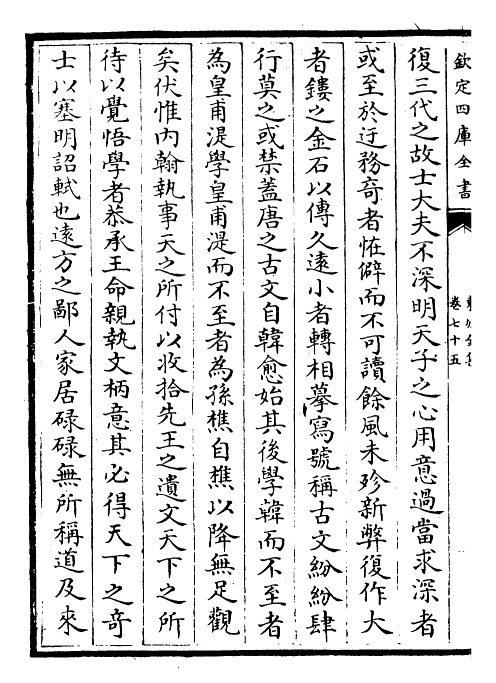 欽定四庫全書
卷七十五
復三代之故士大夫不深明天子之心用意過當求深者
或至於迂務竒者怪僻而不可讀餘風未殄新弊復作大
者鏤之金石以傳久遠小者轉相摹寫號稱古文紛紛肆
行莫之或禁蓋唐之古文自韓愈始其後學韓而不至者
為皇甫湜學皇甫湜而不至者為孫樵自樵以降無足觀
矣伏惟内翰執事天之所付以收拾先王之遺文天下之所
待以覺悟學者恭承王命親執文柄意其必得天下之竒
士以塞明詔軾也逺方之鄙人家居碌碌無所稱道及來